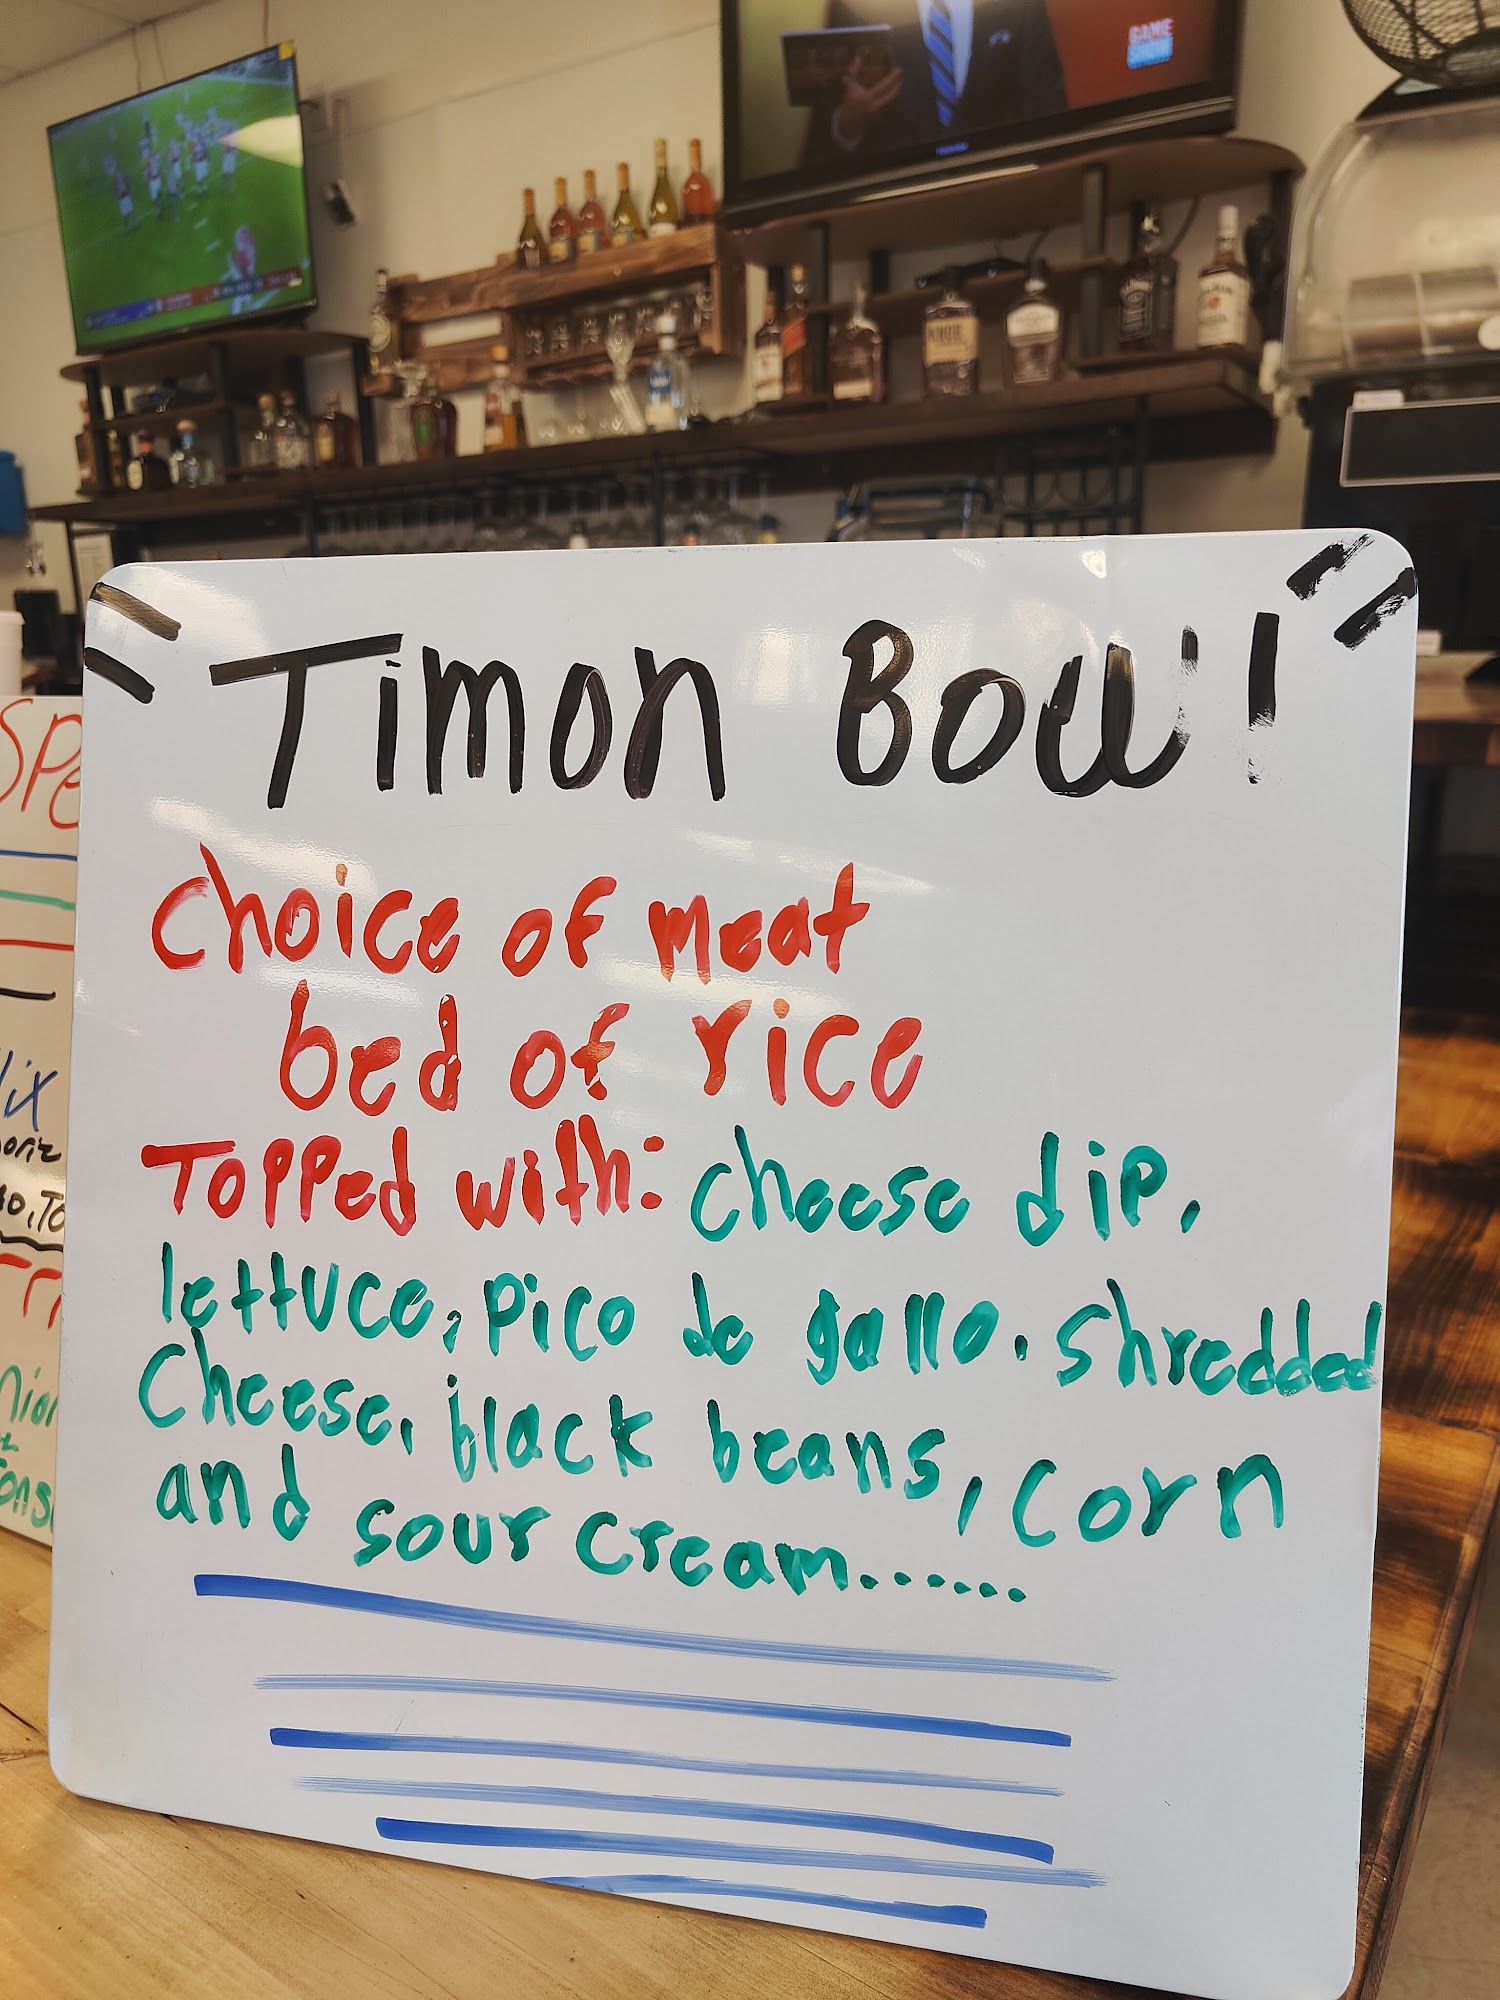 Timon Bowl!
choice of meat
bed of rice
Topped with: cheese dip,
lettuce, pico de gallo, shredded
cheese, black beans, corn
and sour cream.......
GAME
SHOW